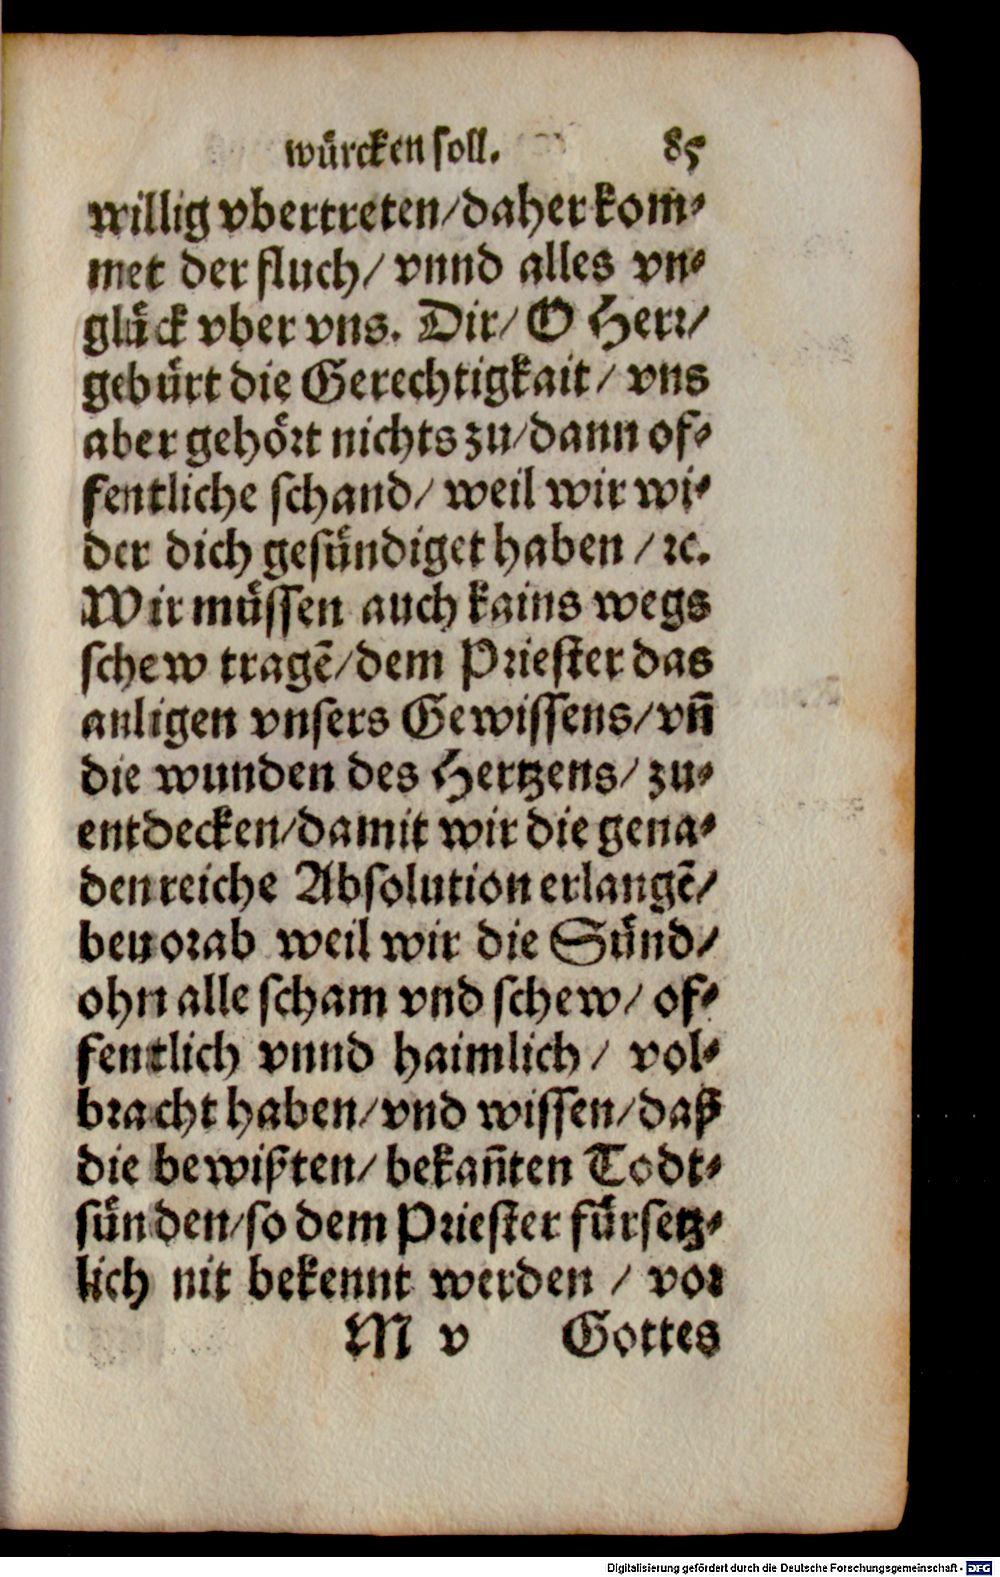 würcken soll. 85
willig vbertreten/daher kom-
met der fluch/ vnnd alles vn-
glück vber vns. Dir/ O Herr/
gebürt die Gerechtigkait/ vns
aber gehört nichts zu/dann of-
fentliche schand/ weil wir wi-
der dich gesündiget haben /ꝛc.
Wir müssen auch kains wegs
schew tragē/dem Priester das
anligen vnsers Gewissens/vñ
die wunden des Hertzens/ zu-
entdecken/damit wir die gena-
denreiche Absolution erlangē/
beuorab weil wir die Sünd/
ohn alle scham vnd schew/ of-
fentlich vnnd haimlich/ vol-
bracht haben/vnd wissen/daß
die bewißten/ bekañten Todt-
sünden/so dem Priester fürsetz-
lich nit bekennt werden / vor
M v Gottes
Digitalisierung gefördert durch die Deutsche Forschungsgemeinschaft - DFG